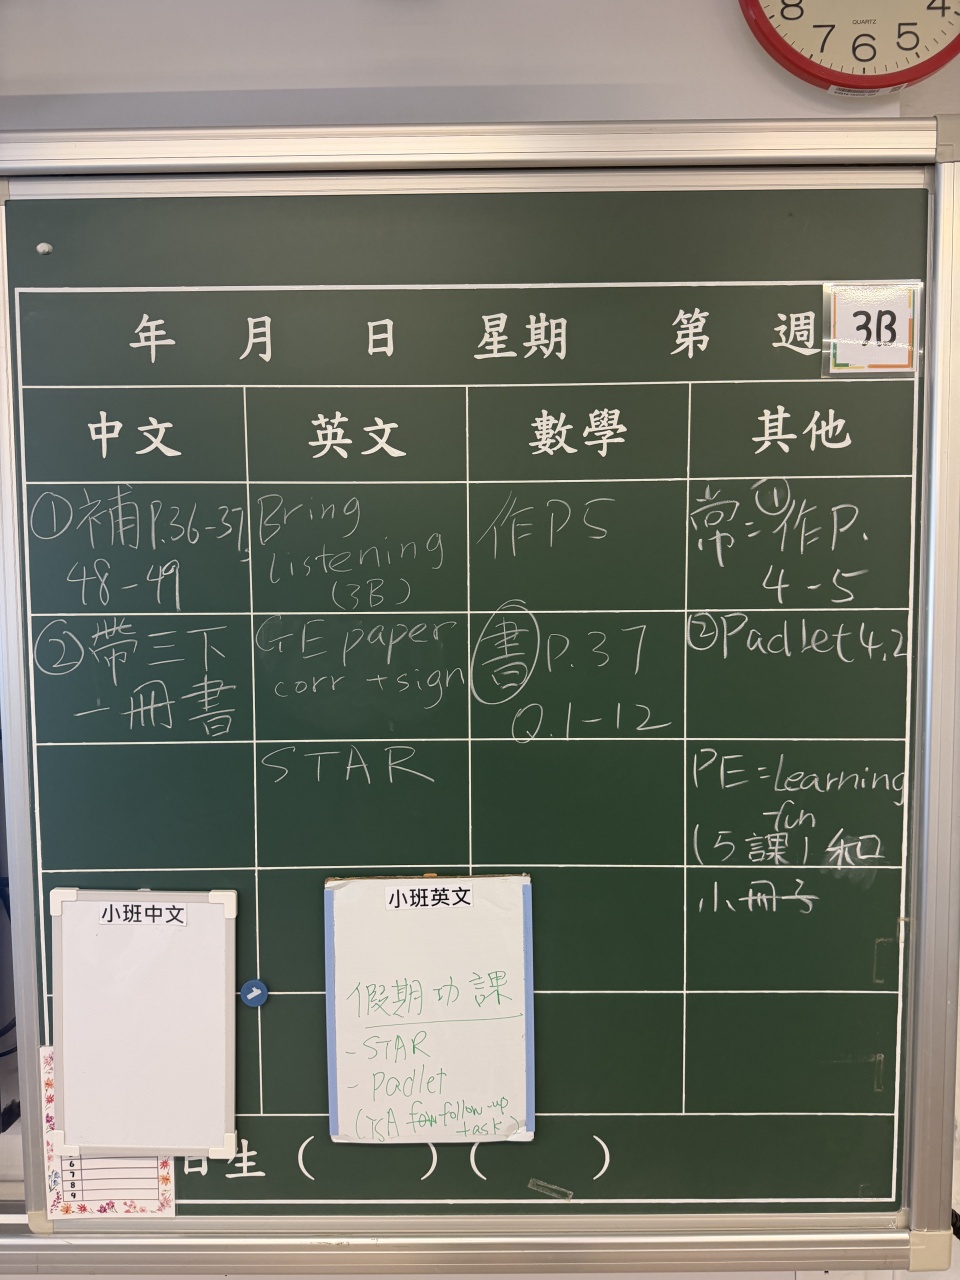 8 QUARTZ 4
7 6 5
年 月 日 星期 第 週 3B
中文 英文 數學 其他
①補P.36-37,
48-49
Bring
listening
(3B)
作P5
常=①作P.
4-5
②帶三下
一冊書
GE paper
corr +sign
書P.37
Q.1-12
②Padlet 4.2
STAR
PE=Learning
fun
(5課)和
小冊子
小班中文
小班英文
假期功課
- STAR
- Padlet
(TSA follow-up
task)
日生 ( ) ( )
6
7
8
9